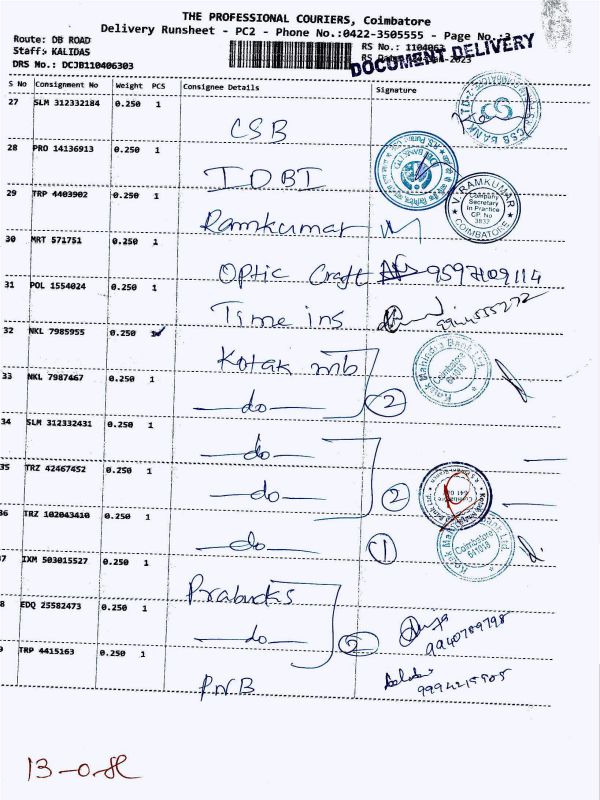 THE PROFESSIONAL COURIERS, Coimbatore
Delivery Runsheet - PC2 - Phone No.:0422-3505555 - Page No.:3
Route: DB ROAD
Staff: KALIDAS
RS No.: 1104063
DRS No.: DCJB110406303
DOCUMENT DELIVERY
S No Consignment No Weight PCS Consignee Details Signature
27 SLM 312332184 0.250 1
CSB
28 PRO 14136913 0.250 1
IDBI
29 TRP 4403902 0.250 1
Ramkumar
V. RAMKUMAR
Company
Secretary
In Practice
CP. No
3832
COIMBATORE
30 MRT 571751 0.250 1
Optic Craft 9597109114
31 POL 1554024 0.250 1
Time ins 9944555272
32 NKL 7985955 0.250
Kotak mb
Kotak Mahindra Bank Ltd
Coimbatore
641018
33 NKL 7987467 0.250 1
do 2
34 SLM 312332431 0.250 1
do
35 TRZ 42467452 0.250 1
do 2
36 TRZ 102043410 0.250 1
do 1
Kotak Mahindra Bank Ltd
Coimbatore
641018
7 IXM 503015527 0.250 1
8 EDQ 25582473 0.250 1
do 2
9940789798
9 TRP 4415163 0.250 1
P.N.B